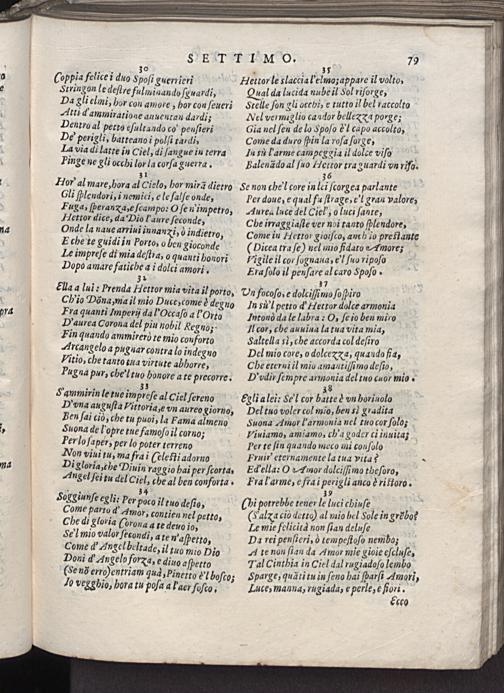 SETTIMO. 79
30
Coppia felice i duo Sposi guerrieri
Stringon le destre fulminando sguardi,
Da gli elmi, hor con amore, hor con seueri
Atti d'ammiratione auuentan dardi;
Dentro al petto esultando co' pensieri
De' perigli, batteano i polsi tardi,
La via di latte in Ciel, di sangue in terra
Pinge ne gli occhi lor la corsa guerra.
31
Hor' al mare, hora al Cielo, hor mirā dietro
Gli splendori, i nemici, e le salse onde,
Fuga, speranza, e scampo: O se n'impetro,
Hettor dice, da Dio l'aure seconde,
Onde la naue arriui innanzi, ò indietro,
E che te guidi in Porto, o ben gioconde
Le imprese di mia destra, o quanti honori
Dopo amare fatiche a i dolci amori.
32
Ella a lui: Prenda Hettor mia vita il porto,
Ch'io Dōna, ma il mio Duce, come è degno
Fra quanti Imperij da l'Occaso a l'Orto
D'aurea Corona del piu nobil Regno;
Fin quando ammirerò te mio conforto
Arcangelo a pugnar contra lo indegno
Vitio, che tanto tua virtute abhorre,
Pugna pur, che'l tuo honore a te precorre.
33
S'ammirin le tue imprese al Ciel sereno
D'vna augusta Vittoria, e vn aureo giorno,
Ben sai ciò, che tu puoi, la Fama almeno
Suona de l'opre tue famoso il corno;
Per lo saper, per lo poter terreno
Non viui tu, ma fra i Celesti adorno
Di gloria, che Diuin raggio hai per scorta,
Angel sei tu del Ciel, che al ben conforta.
34
Soggiunse egli: Per poco il tuo desio,
Come parto d'Amor, contien nel petto,
Che di gloria Corona a te deuo io,
Se'l mio valor secondi, a te n'aspetto,
Come d'Angel beltade, il tuo mio Dio
Doni d'Angelo forza, e diuo aspetto
(Se nō erro) entriam quà, Pinetto è'l bosco;
Io vegghio, hora tu posa a l'aer fosco.
35
Hettor le slaccia l'elmo; appare il volto,
Qual da lucida nube il Sol risorge,
Stelle son gli occhi, e tutto il bel raccolto
Nel vermiglio candor bellezza porge;
Gia nel sen de lo Sposo è'l capo accolto,
Come da duro spin la rosa sorge,
In sù l'arme campeggia il dolce viso
Balenādo al suo Hettor tra guardi vn riso.
36
Se non che'l core in lei scorgea parlante
Per doue, e qual fu strage, e'l gran valore,
Aurea luce del Ciel, o luci sante,
Che irraggiaste ver noi tanto splendore,
Come in Hettor gioisco, anch'io prestante
(Dicea tra se) nel mio fidato Amore;
Vigile il cor sognaua, e'l suo riposo
Era solo il pensare al caro Sposo.
37
Vn focoso, e dolcissimo sospiro
In sù'l petto d'Hettor dolce armonia
Intonò da le labra: O, se io ben miro
Il cor, che auuiua la tua vita mia,
Saltella sì, che accorda col desiro
Del mio core, o dolcezza, quando fia,
Che eterni il mio amantissimo desio,
D'vdir sempre armonia del tuo cuor mio.
38
Egli a lei: Se'l cor batte è vn horiuolo
Del tuo voler col mio, ben sì gradita
Suona Amor l'armonia nel tuo cor solo;
Viuiamo, amiamo, ch'a goder ci inuita;
Per te fin quando meco mi consolo
Fruir' eternamente la tua vita?
Ed'ella: O Amor dolcissimo thesoro,
Fra l'arme, e fra i perigli anco è ristoro.
39
Chi potrebbe tener le luci chiuse
(S'alza ciò detto) al mio bel Sole in grēbo?
Le mie felicità non sian deluse
Da rei pensieri, ò tempestoso nembo;
A te non sian da Amor mie gioie escluse,
Tal Cinthia in Ciel dal rugiadoso lembo
Sparge, quāti tu in seno hai sparsi Amori,
Luce, manna, rugiada, e perle, e fiori.
Ecco